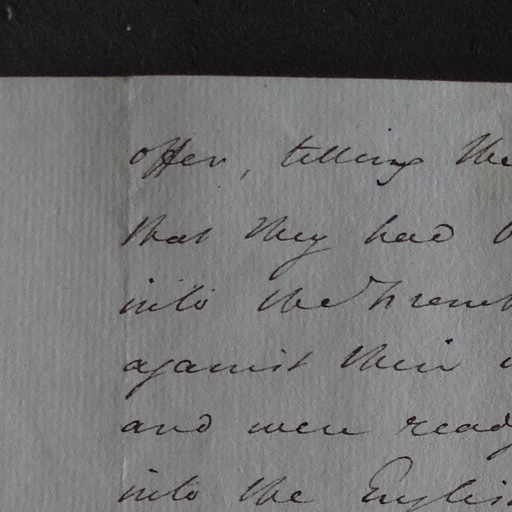 offer, telling the
that they had
into the French
against their
and were ready
into the English